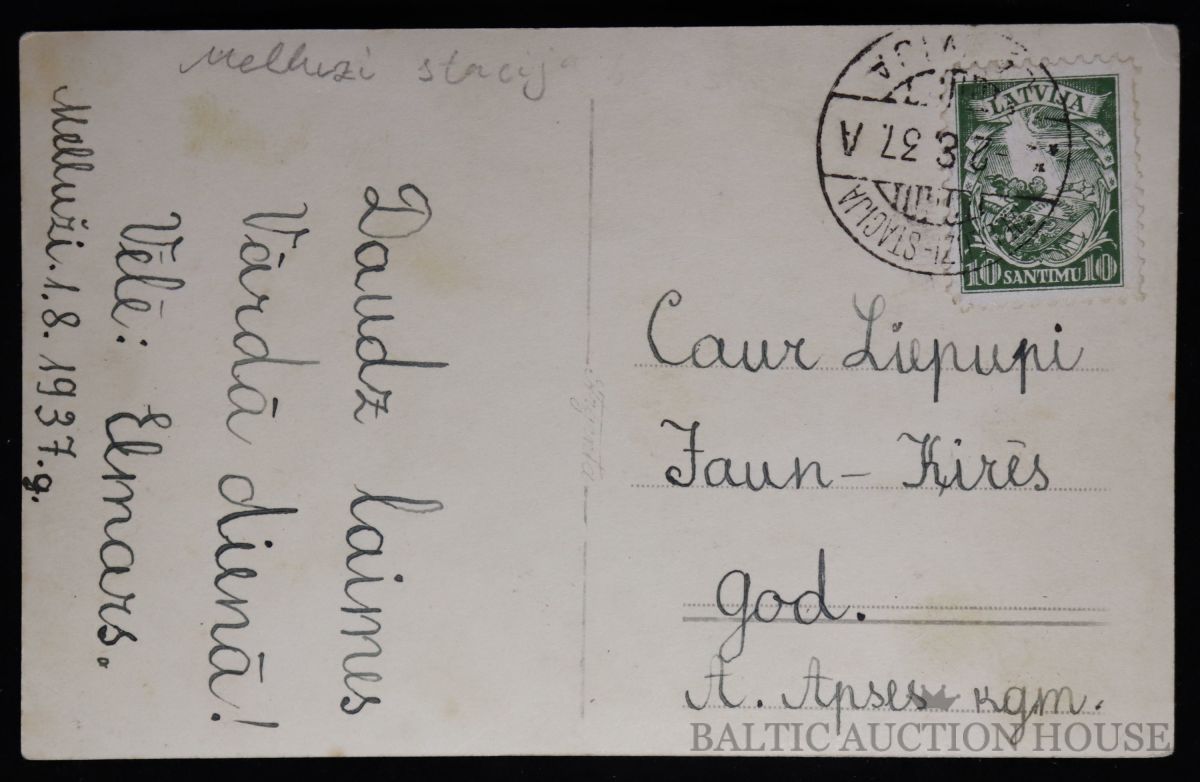 Melluzi stacij
Daudz laimes
Vārdā dienā!
Vēlē: Elmars.
Melluži. 1. 8. 1937. g.
LATVIJA
10 SANTIMU 10
2 8 37. A
ZI-STACIJA
Caur Liepupi
Jaun-Ķirēs
God.
A. Apses kgm.
BALTIC AUCTION HOUSE